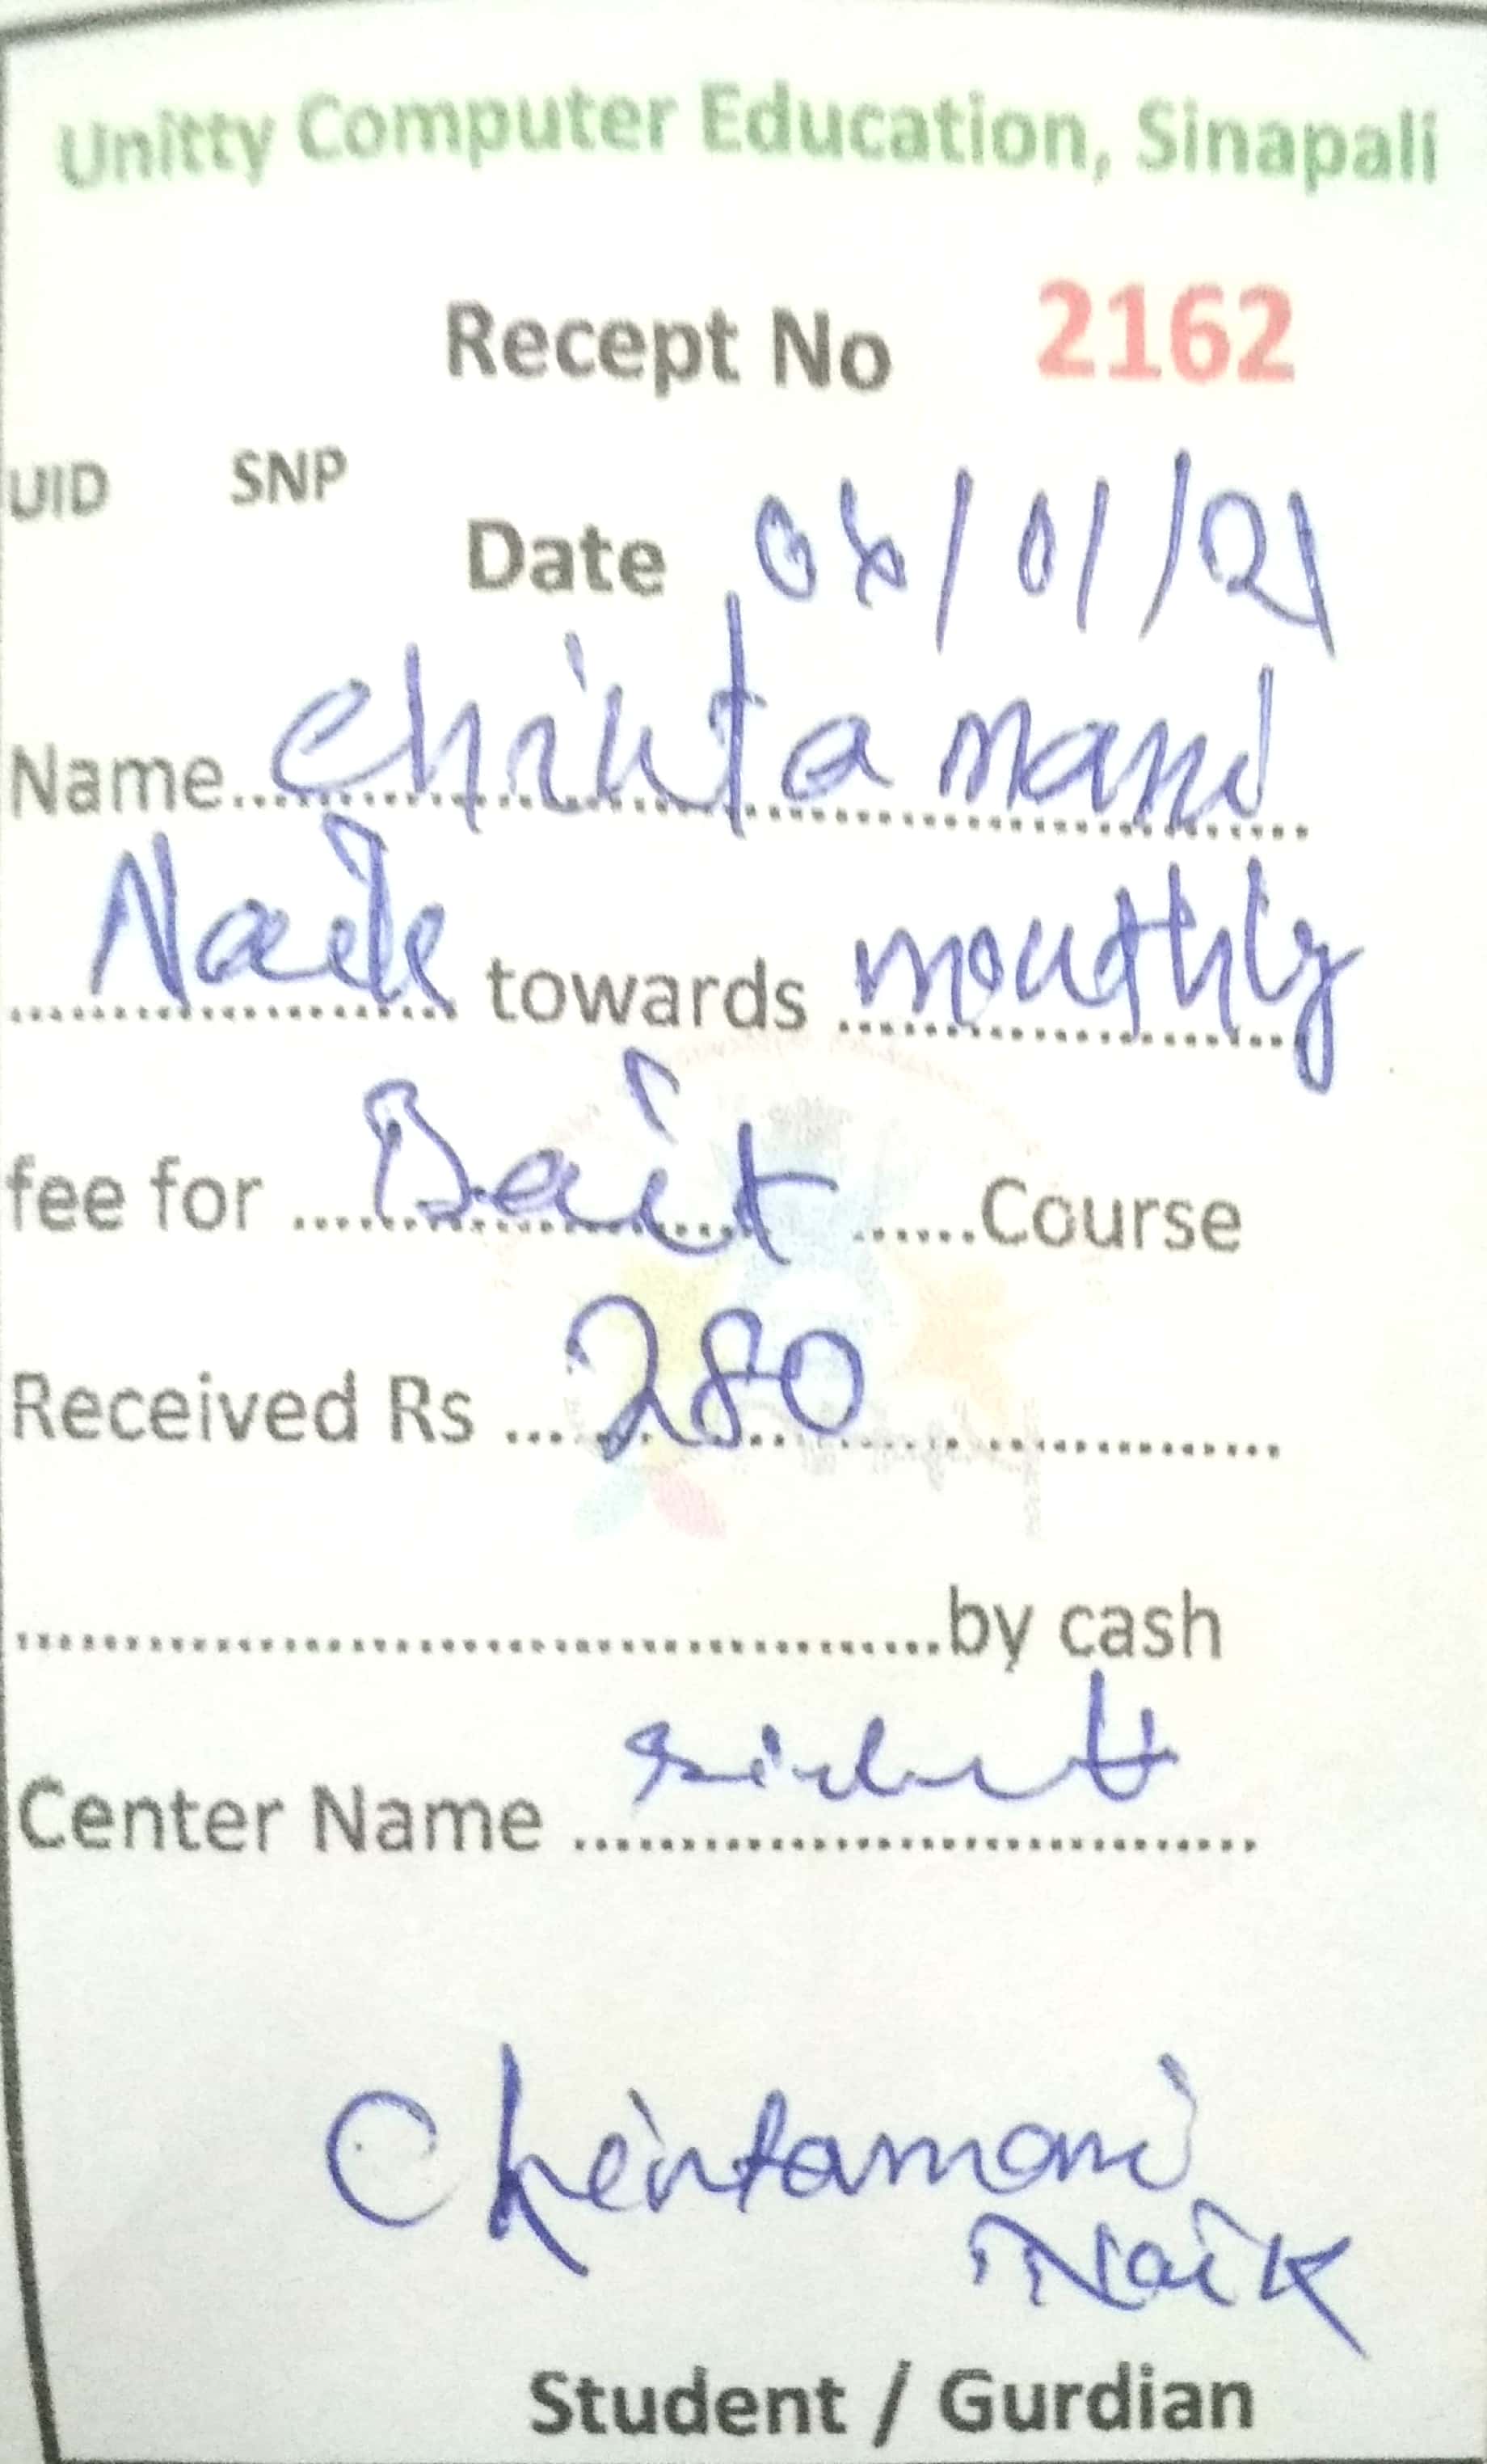 Unitty Computer Education, Sinapali
Recept No 2162
UID SNP
Date 08/01/21
Name.......Chintamani
Naik towards monthly
fee for ....Dait.......Course
Received Rs ...280..............
..............................by cash
Center Name ..............................
Chintamani
Naik
Student / Gurdian